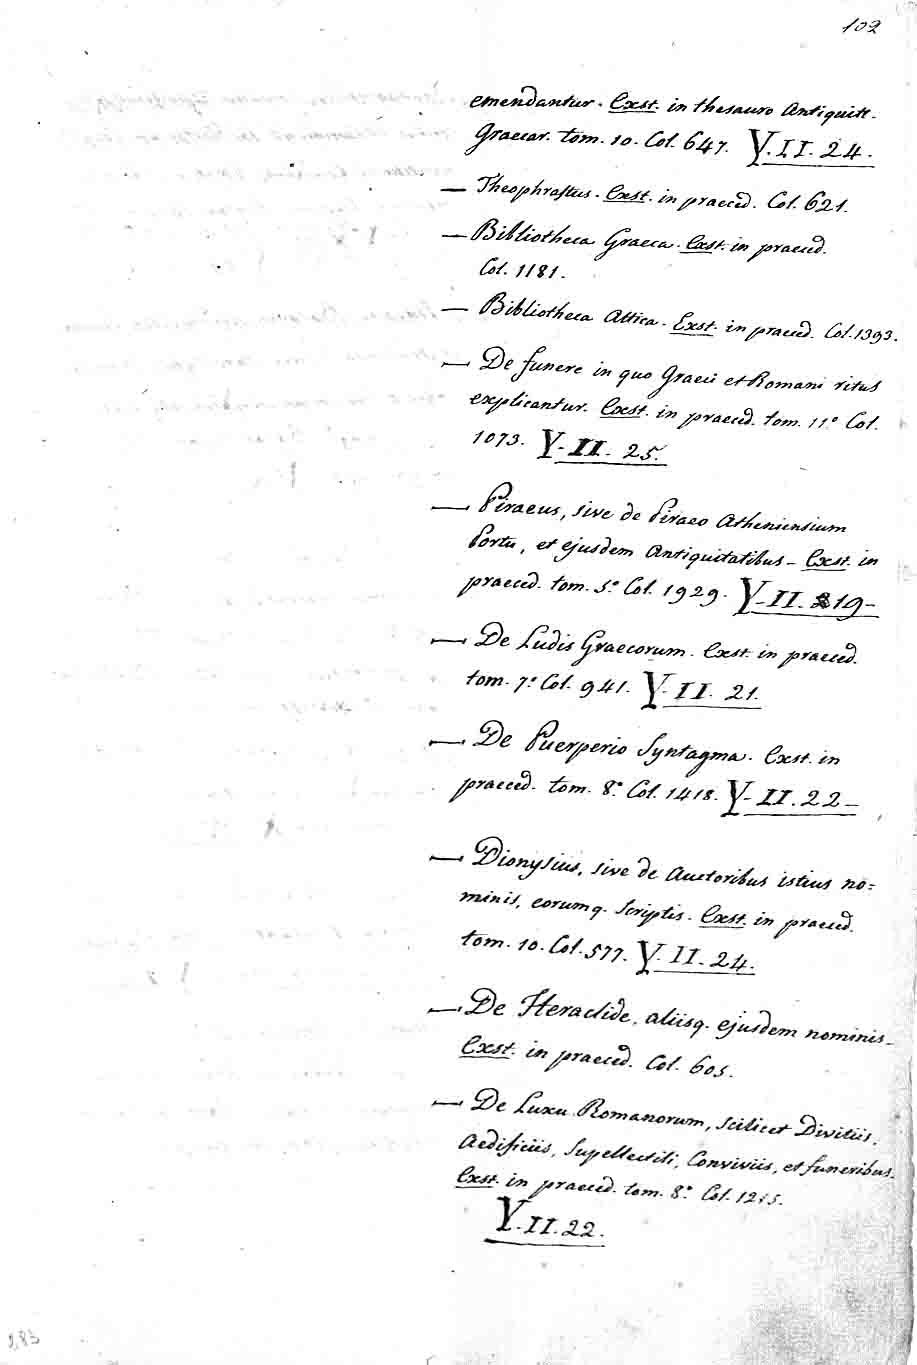 102
emendantur. Exst. in thesauro Antiquitt.
Graecar. tom. 10. Col. 647. Y.II.24.
— Theophrastus. Exst. in praeced. Col. 621.
— Bibliotheca Graeca. Exst. in praeced.
Col. 1181.
— Bibliotheca Attica. Exst. in praeced. Col. 1393.
— De funere in quo Graeci et Romani ritus
explicantur. Exst. in praeced. tom. 11.º Col.
1073. Y.II.25.
— Piraeus, sive de Piraeo Atheniensium
Portu, et ejusdem Antiquitatibus. Exst. in
praeced. tom. 5.º Col. 1929. Y.II.19.
— De Ludis Graecorum. Exst. in praeced.
tom. 7.º Col. 941. Y.II.21.
— De Puerperio Syntagma. Exst. in
praeced. tom. 8.º Col. 1418. Y.II.22.
— Dionysius, sive de Auctoribus istius no=
minis, eorumq. scriptis. Exst. in praeced.
tom. 10. Col. 577. Y.II.24.
— De Heraclide, aliisq. ejusdem nominis.
Exst. in praeced. Col. 605.
— De Luxu Romanorum, scilicet Divitiis,
Aedificiis, Supellectili, Conviviis, et funeribus.
Exst. in praeced. tom. 8.º Col. 1215.
Y.II.22.